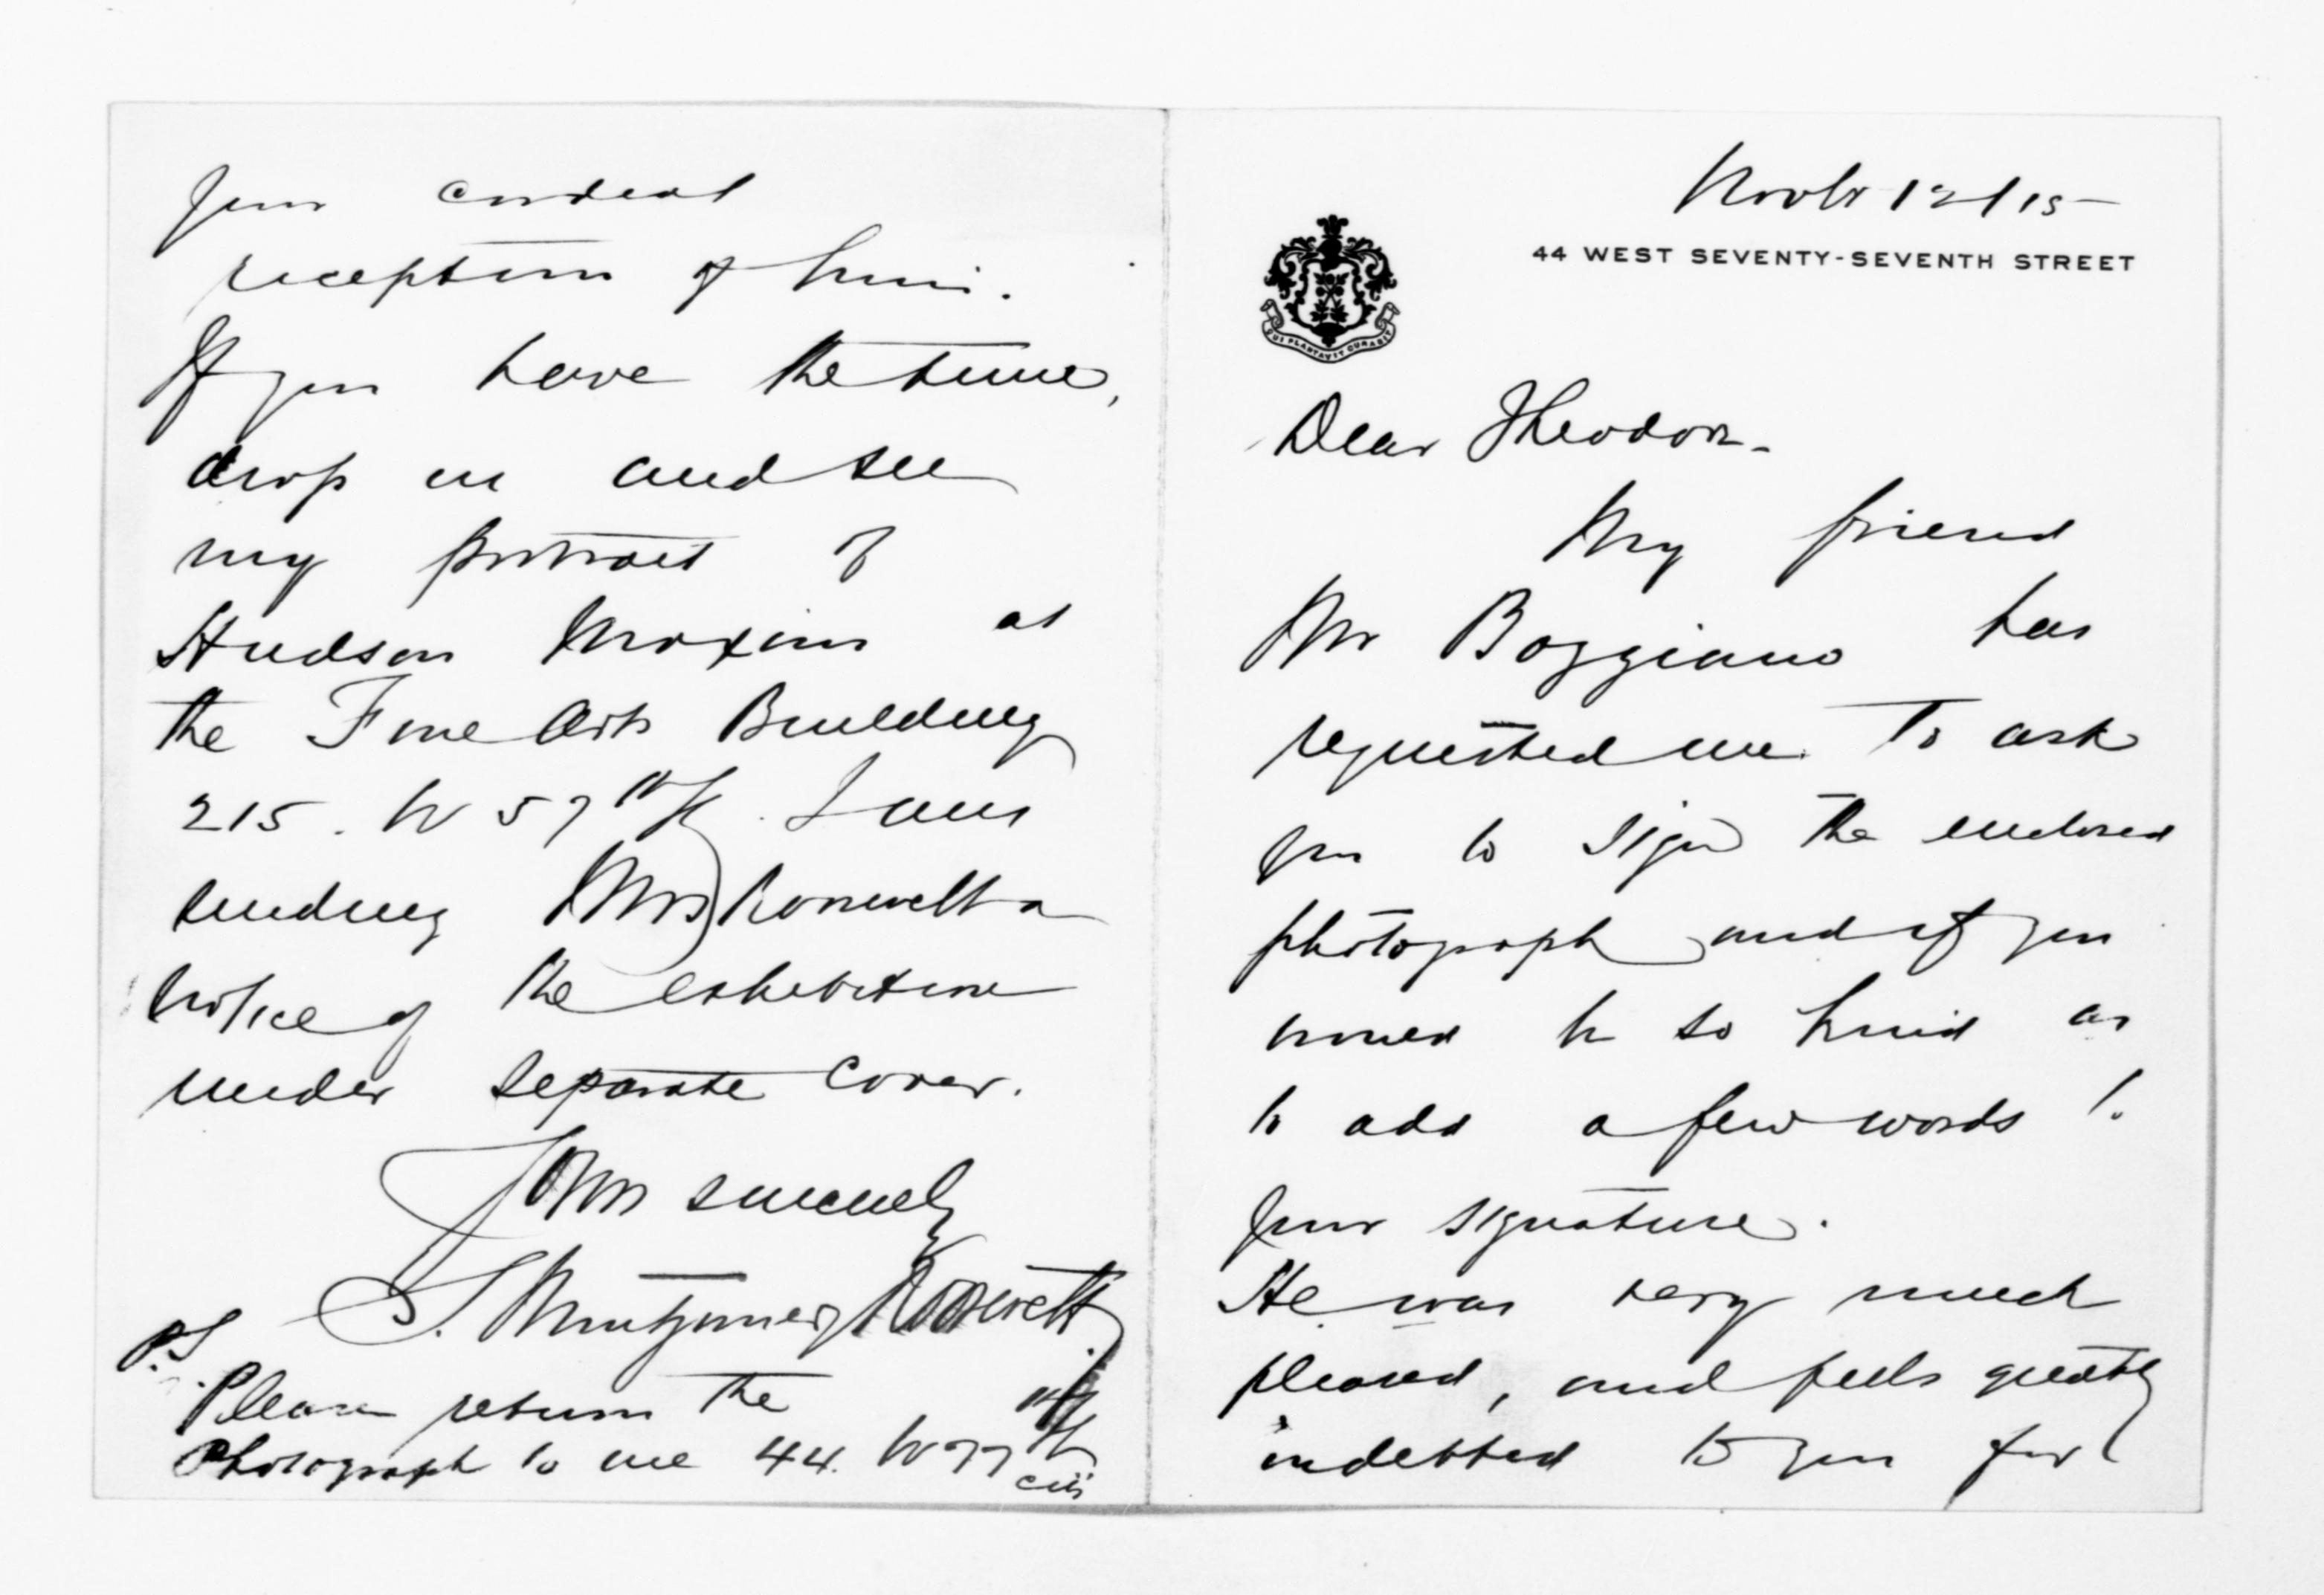 Novbr 12/15
44 WEST SEVENTY-SEVENTH STREET
QUI PLANTAVIT CURABIT
Dear Theodore -
My friend
Mr Boggiano has
requested me to ask
you to sign the enclosed
photograph and if you
would be so kind as
to add a few words to
your signature.
He was very much
pleased, and feels greatly
indebted to you for
your cordial
reception of him.
If you have the time,
drop in and see
my portrait of
Hudson Maxim at
the Fine Arts Building
215. W 57th St. I am
sending Mrs Roosevelt a
notice of the exhibition
under separate cover.
Yours sincerely
S. Montgomery Roosevelt
P.S.
Please return the
Photograph to me 44. W 77th St